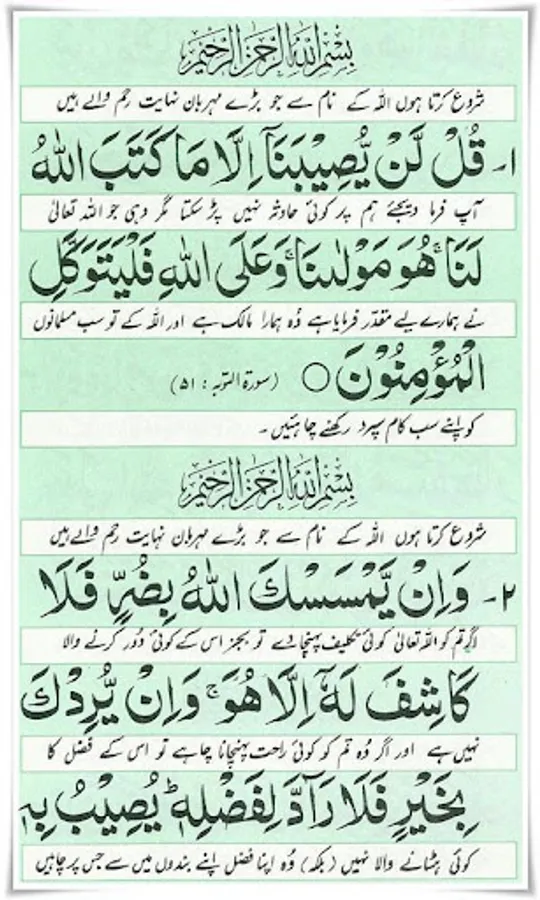 بِسْمِ اللهِ الرَّحْمٰنِ الرَّحِيْمِ
شروع کرتا ہوں اللہ کے نام سے جو بڑے مہربان نہایت رحم والے ہیں
۱۔ قُلْ لَّنْ يُّصِيْبَنَآ اِلَّا مَا كَتَبَ اللهُ
آپ فرما دیجئے ہم پر کوئی حادثہ نہیں پڑ سکتا مگر وہی جو اللہ تعالیٰ
لَنَا ۚ هُوَ مَوْلٰىنَا ۚ وَعَلَى اللهِ فَلْيَتَوَكَّلِ
نے ہمارے لیے مقدر فرمایا ہے وُہ ہمارا مالک ہے اور اللہ کے تو سب مسلمانوں
الْمُؤْمِنُوْنَ ○ (سورة التوبہ : ۵۱)
کو اپنے سب کام سپرد رکھنے چاہئیں۔
بِسْمِ اللهِ الرَّحْمٰنِ الرَّحِيْمِ
شروع کرتا ہوں اللہ کے نام سے جو بڑے مہربان نہایت رحم والے ہیں
۲۔ وَاِنْ يَّمْسَسْكَ اللهُ بِضُرٍّ فَلَا
اگر تم کو اللہ تعالیٰ کوئی تکلیف پہنچا دے تو بجز اس کے کوئی دُور کرنے والا
كَاشِفَ لَهٗٓ اِلَّا هُوَ ۚ وَاِنْ يُّرِدْكَ
نہیں ہے اور اگر وُہ تم کو کوئی راحت پہنچانا چاہے تو اس کے فضل کا
بِخَيْرٍ فَلَا رَآدَّ لِفَضْلِهٖ ؕ يُصِيْبُ بِهٖ
کوئی ہٹانے والا نہیں (بلکہ) وُہ اپنا فضل اپنے بندوں میں سے جس پر چاہیں